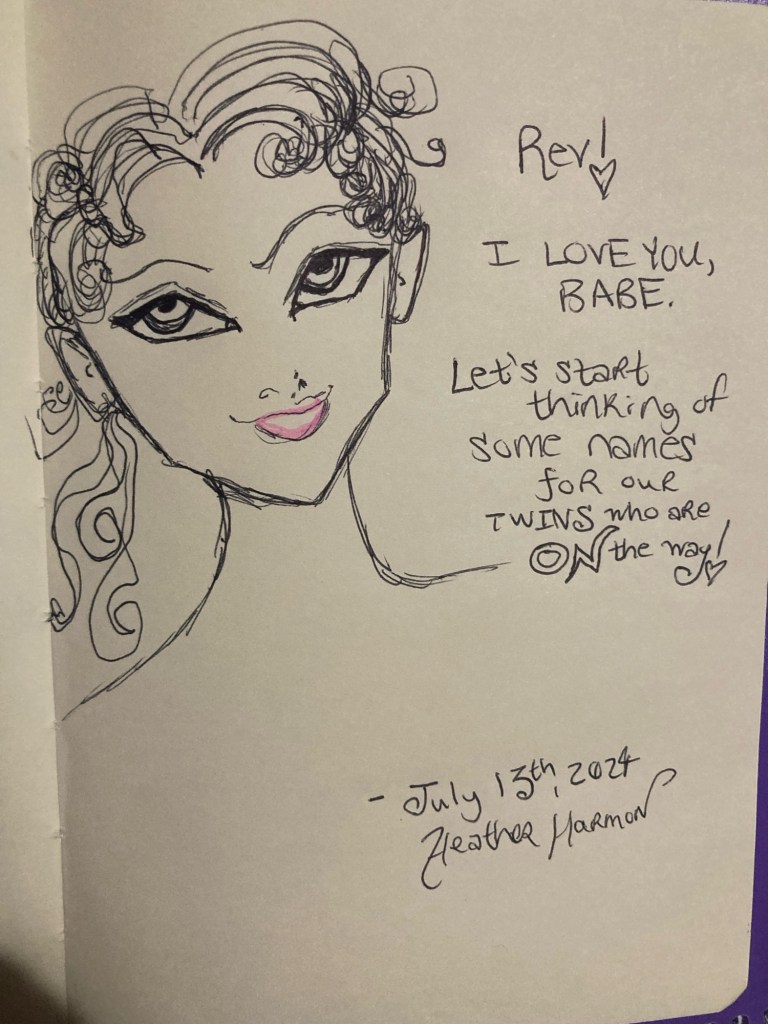 Rev!
I LOVE YOU,
BABE.
Let's start
thinking of
some names
for our
TWINS who are
ON the way!
- July 13th, 2024
Heather Harmon